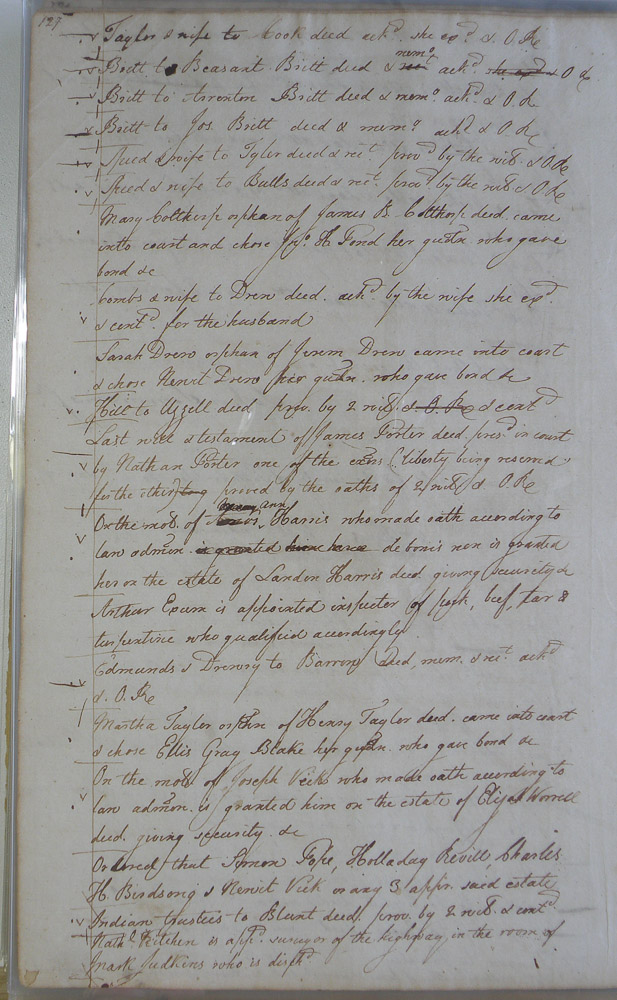 127
Taylor & wife to Cook deed ackd. she exd. & O. Re
Britt to Beasant Britt deed & memo. ackd. she exd. & O Re
Britt to Arrenton Britt deed & memo. ackd. & O. Re
Britt to Jos. Britt deed & memo. ackd. & O. Re
& wife to Tyler deed & rect. provd. by the wits. & O. Re
& wife to Bulls deed & rect. provd. by the wits. & O. Re
Mary Colthorp orphan of James B. Colthorp deed. came
into court and chose Jno. H. Pond her gudn. who gave
bond &c
Combs & wife to Drew deed. ackd. by the wife she exd.
& contd. for the husband
Sarah Drew orphan of Jerem Drew came into court
& chose Newit Drew her gudn. who gave bond &c
Hill to Uzzell deed. prov. by 2 wits. & O. Re & contd
Last will & testament of James Porter deed. presd. in court
by Nathan Porter one of the exors (liberty being reserved
for the other) proved by the oaths of 2 wits & O. Re
On the mot. of Ann Harris who made oath according to
law admon. is granted him de bonis non is granted
her on the estate of Landon Harris deed giving security &c
Arthur Exum is appointed inspector of pork, beef, tar &
turpentine who qualified accordingly
Edmunds & Drewry to Barrow deed, mem. & rect. ackd
& O. Re
Martha Taylor orphn of Henry Taylor deed. came into court
& chose Ellis Gray Blake her gudn. who gave bond &c
On the mot. of Joseph Vick who made oath according to
law admon. is granted him on the estate of Elijah Worrell
deed. giving security &c
Ordered that Simon Pope, Holladay Revill Charles
H. Birdsong & Newit Vick or any 3 appr. said estate
Indian trustees to Blunt deed. prov. by 2 wits. & contd
Nathl. Kitchen is appd. surveyor of the highway in the room of
Mark Judkins who is dischd